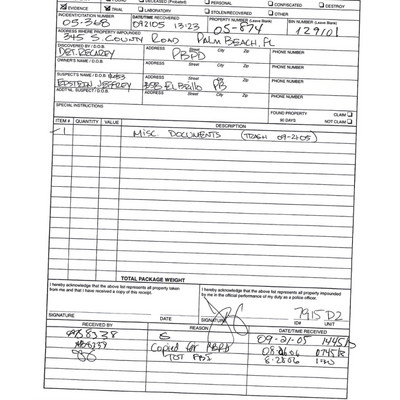 FOUND DECEASED (Probated) PERSONAL CONFISCATED DESTROY
EVIDENCE TRIAL LABORATORY STOLEN/RECOVERED OTHER
INCIDENT/CITATION NUMBER DATE/TIME RECOVERED PROPERTY NUMBER (Leave Blank) BIN (Leave Blank)
05-368 092105 13:23 05-874 129101
ADDRESS WHERE PROPERTY IMPOUNDED
345 S. COUNTY ROAD PALM BEACH, FL
DISCOVERED BY / D.O.B. ADDRESS Street City Zip PHONE NUMBER
DET. RECAREY PBPD
OWNER'S NAME / D.O.B. ADDRESS Street City Zip PHONE NUMBER
SUSPECT'S NAME / D.O.B. ADDRESS Street City Zip PHONE NUMBER
EPSTEIN JEFFREY 358 El Brillo PB
ADD'TAL SUSPECT / D.O.B. ADDRESS Street City Zip PHONE NUMBER
SPECIAL INSTRUCTIONS FOUND PROPERTY CLAIM
90 DAYS NOT CLAIM
ITEM # QUANTITY VALUE DESCRIPTION
1 MISC DOCUMENTS (TRASH 09-21-05)
TOTAL PACKAGE WEIGHT
I hereby acknowledge that the above list represents all property taken from me and that I have received a copy of this receipt.
I hereby acknowledge that the above list represents all property impounded by me in the official performance of my duty as a police officer.
7915 D2
SIGNATURE DATE SIGNATURE ID# UNIT
RECEIVED BY REASON DATE/TIME RECEIVED
S 09-21-05 1445
Copied for
TOT FBI